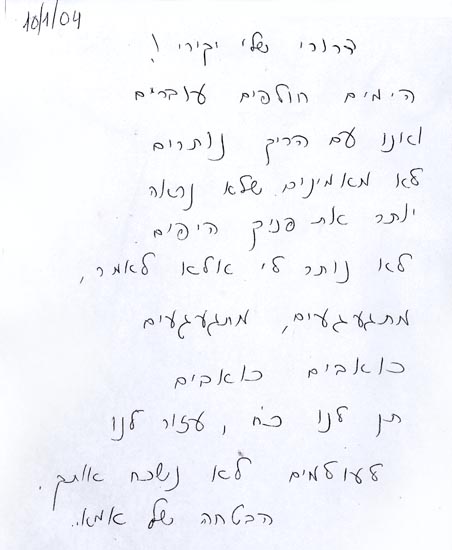 10/1/04
דרורי שלי יקירי !
הימים חולפים עוברים
ואנו עם הריק נותרים
לא מאמינים שלא נראה
יותר את פניך היפים
לא נותר לי אלא לאמר,
מתגעגעים, מתגעגעים
כואבים כואבים
תן לנו כח, עזור לנו
לעולמים לא נשכח אותך.
הבטחה של אמא..